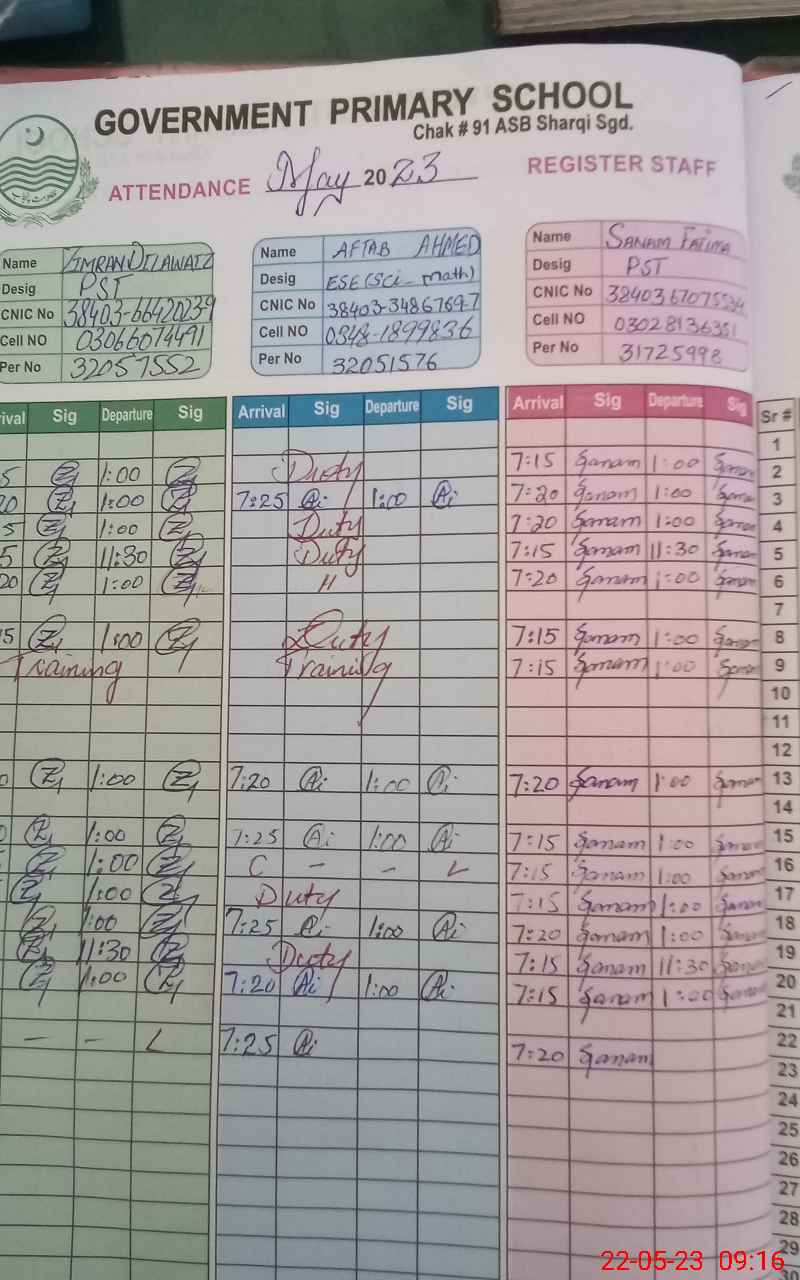 GOVERNMENT PRIMARY SCHOOL
Chak # 91 ASB Sharqi Sgd.
ATTENDANCE May 2023 REGISTER STAFF
Name IMRAN DILAWAIZ Name AFTAB AHMED Name SANAM FATIMA
Desig PST Desig ESE (Sci_ math) Desig PST
CNIC No 38403-6642023-9 CNIC No 38403-3486769-7 CNIC No
Cell NO 03066074491 Cell NO 0348-1899836 Cell NO 03028136351
Per No 32057552 Per No 32051576 Per No 31725998
rival Sig Departure Sig Arrival Sig Departure Sig Arrival Sig Departure Sig Sr #
1
5 1:00 Duty 7:15 Sanam 1:00 Sanam 2
20 1:00 7:25 Ai 1:00 Ai 7:20 Sanam 1:00 Sanam 3
5 1:00 Duty 7:20 Sanam 1:00 Sanam 4
5 11:30 Duty 7:15 Sanam 11:30 Sanam 5
20 1:00 11 7:20 Sanam 1:00 Sanam 6
7
5 1:00 Duty 7:15 Sanam 1:00 Sanam 8
Training Training 7:15 Sanam 1:00 Sanam 9
10
11
12
0 1:00 7:20 Ai 1:00 Ai 7:20 Sanam 1:00 Sanam 13
14
0 1:00 7:25 Ai 1:00 Ai 7:15 Sanam 1:00 Sanam 15
1:00 C - - L 7:15 Sanam 1:00 Sanam 16
1:00 Duty 7:15 Sanam 1:00 Sanam 17
1:00 7:25 Ai 1:00 Ai 7:20 Sanam 1:00 Sanam 18
11:30 Duty 7:15 Sanam 11:30 Sanam 19
1:00 7:20 Ai 1:00 Ai 7:15 Sanam 1:00 Sanam 20
21
- - L 7:25 Ai 7:20 Sanam 22
23
24
25
26
27
28
29
30
22-05-23 09:16